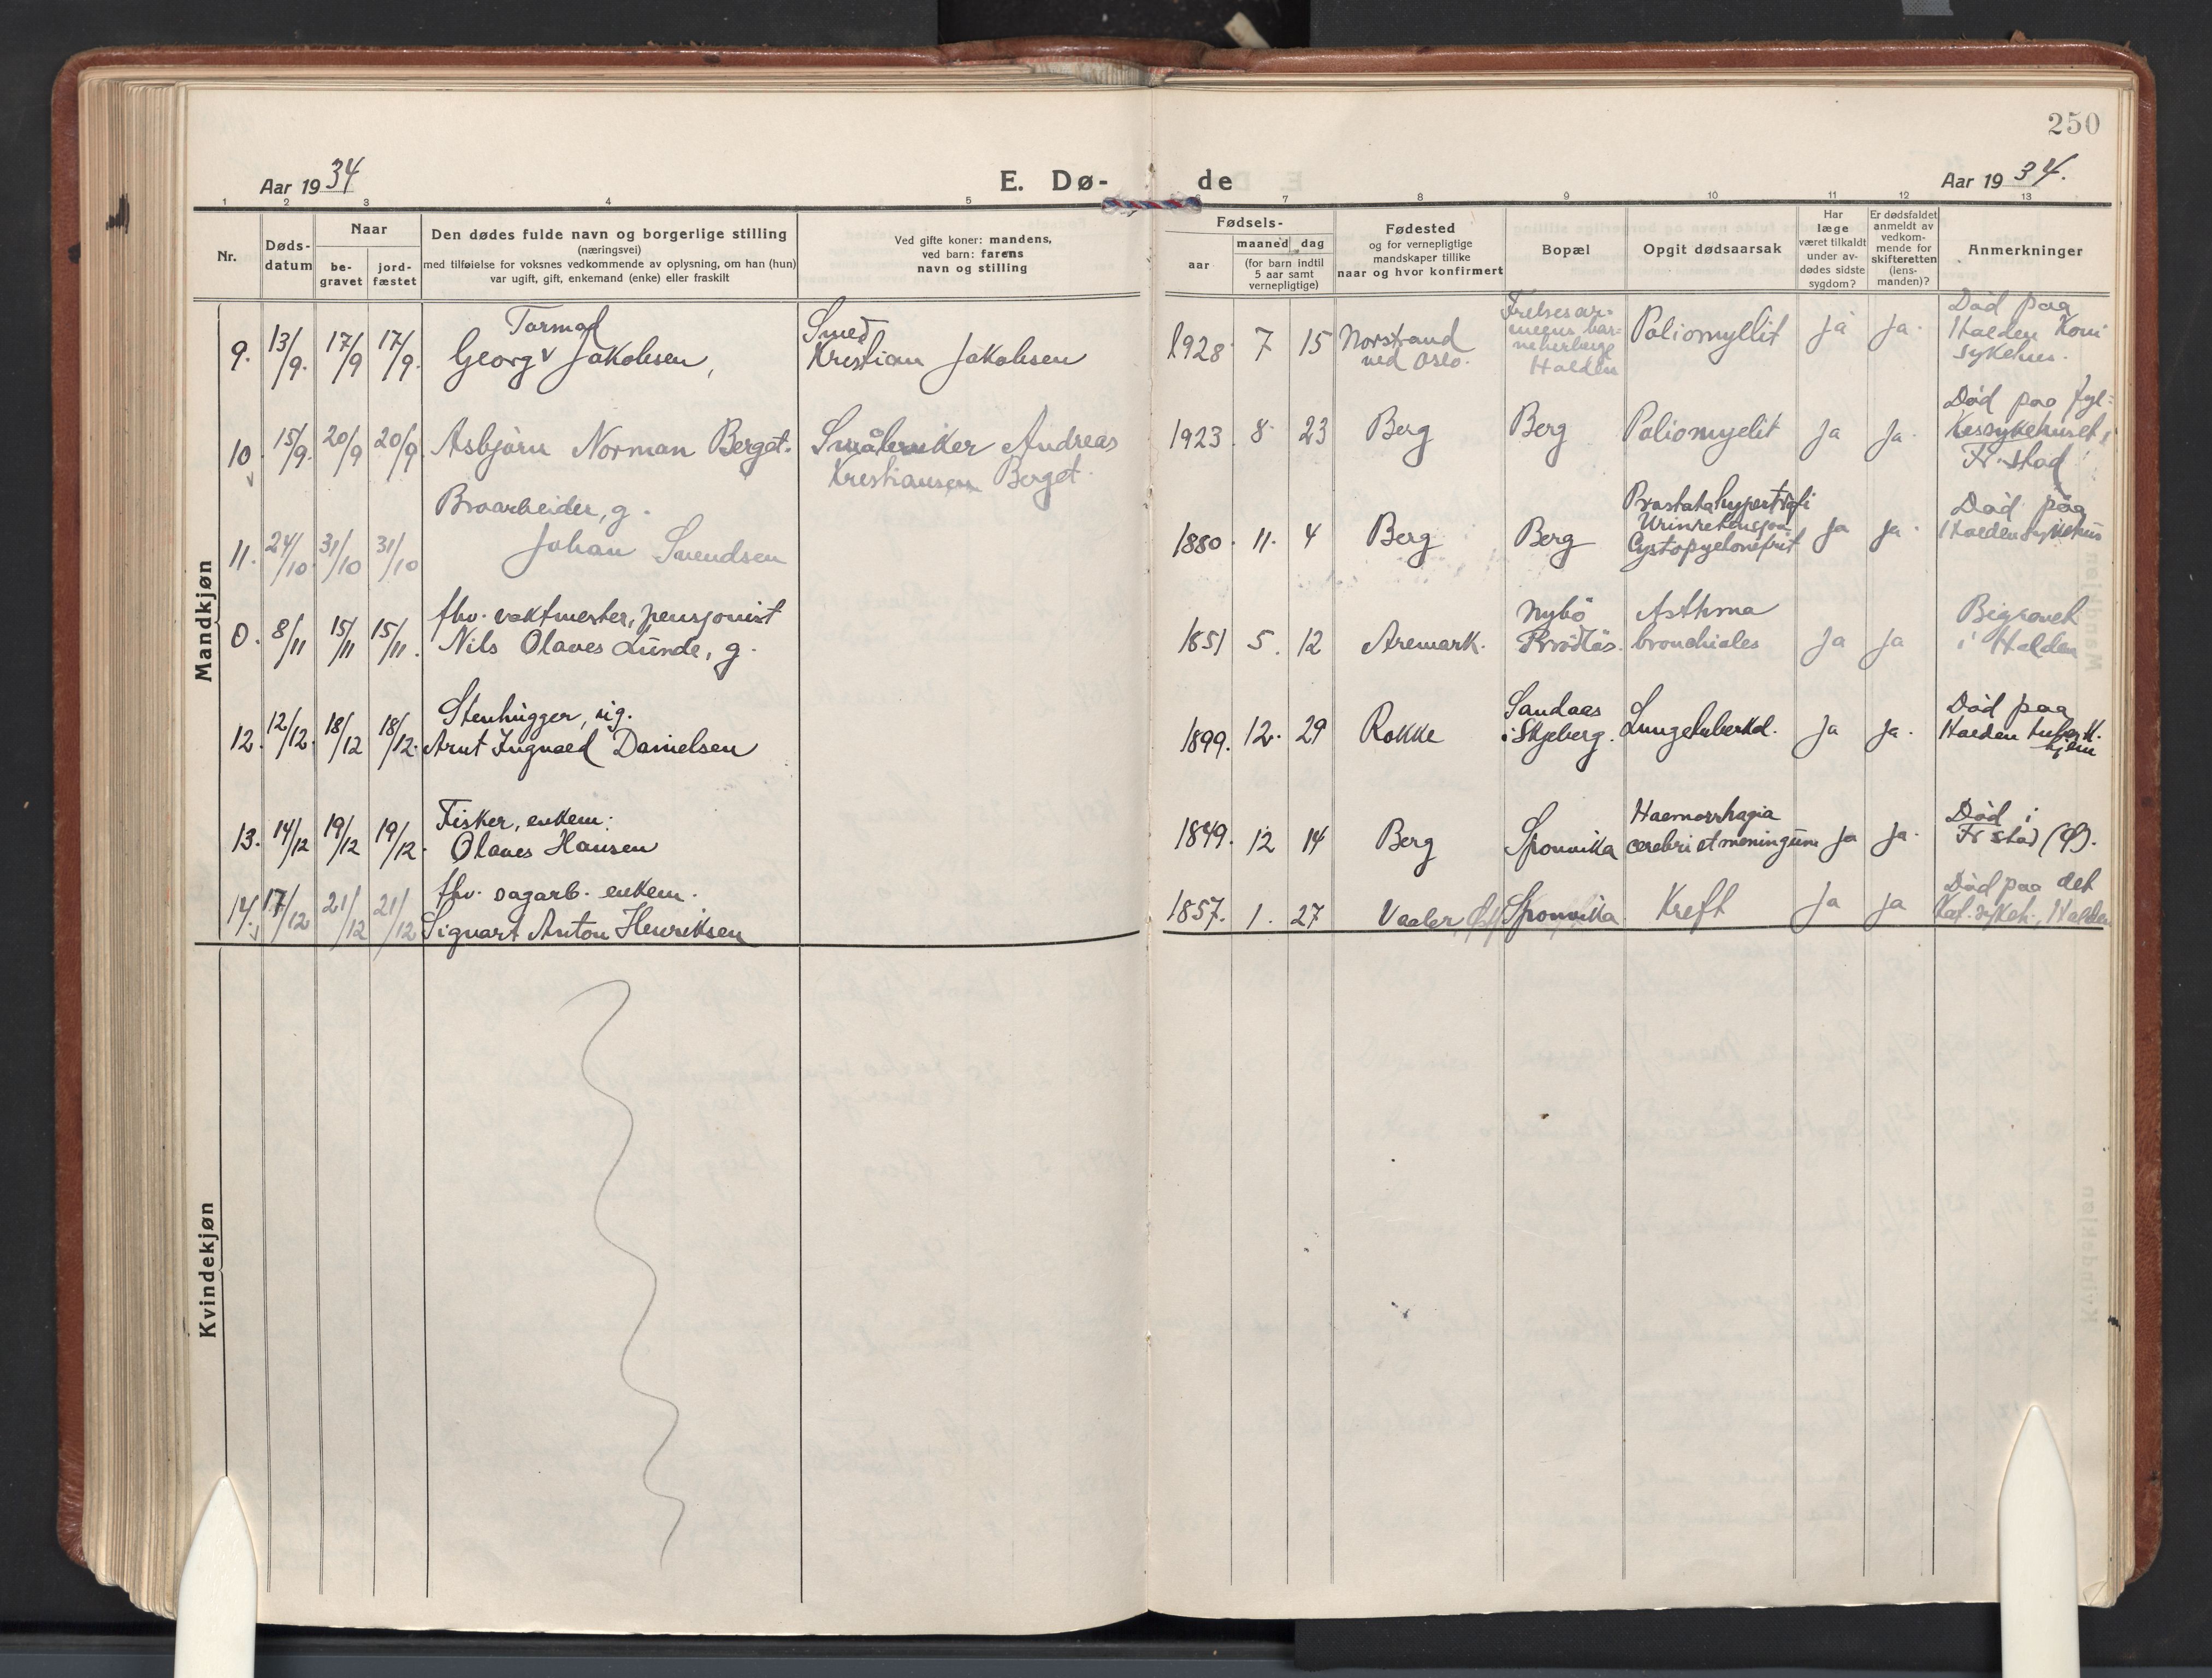 250
Aar 1934
E. Dø-
de
Aar 1934.
1 2 3 4 5 7 8 9 10 11 12 13
Nr.
Døds-
datum
Naar
be-
gravet
jord-
fæstet
Den dødes fulde navn og borgerlige stilling
(næringsvei)
med tilføielse for voksnes vedkommende av oplysning, om han (hun)
var ugift, gift, enkemand (enke) eller fraskilt
Ved gifte koner: mandens,
ved barn: farens
navn og stilling
Fødsels-
aar
maaned dag
(for barn indtil
5 aar samt
vernepligtige)
Fødested
og for vernepligtige
mandskaper tillike
naar og hvor konfirmert
Bopæl
Opgit dødsaarsak
Har
læge
været tilkaldt
under av-
dødes sidste
sygdom?
Er dødsfaldet
anmeldt av
vedkom-
mende for
skifteretten
(lens-
manden)?
Anmerkninger
Mandkjøn
9. 13/9. 17/9 17/9.
Tormod
Georg v Jakobsen,
Smed
Kristian Jakobsen
1928. 7 15
Norstrand
ved Oslo.
Frelsesar-
meens bar-
neherberge
Halden
Poliomyelit
Ja Ja.
Död paa
Halden Kom
sykehus.
10 15/9. 20/9 20/9.
Asbjörn Norman Berget.
Småbruker Andreas
Kristiansen Berget.
1923. 8. 23 Berg Berg Poliomyelit Ja Ja.
Död paa fyl-
kessykehuset,
Fr.stad
11. 24/10. 31/10 31/10
Broarbeider, g.
Johan Svendsen
1880. 11. 4 Berg Berg
Prostatahypertrofi
Urinretensjon
Cystopyelonefrit
Ja Ja.
Död paa
Halden sykehus
0. 8/11 15/11 15/11.
fhv. vaktmester, pensjonist
Nils Olaves Lunde, g.
1851 5. 12 Aremark.
Nybö
Prödlös.
Asthma
bronchiales
Ja Ja
Begravet
i Halden
12. 12/12. 18/12 18/12.
Stenhugger, ug.
Arnt Ingvald Danielsen
1899. 12. 29 Rokke
Sandaas
i Skjeberg.
Lungetuberkul.
Ja Ja.
Död paa
Halden tuberk.
hjem
13. 14/12 19/12 19/12.
Fisker, enkem.
Olaves Hansen
1849. 12 14 Berg Sponvika
Haemorrhagia
cerebri et meningum
Ja Ja.
Död i
Fr stad (Ø).
14. 17/12 21/12 21/12
fhv. sagarb. enkem.
Sigvart Anton Henriksen
1857. 1. 27 Vaaler, Østf Sponvika Kreft Ja Ja
Död paa det
Kat. sykeh., Halden
Kvindekjøn